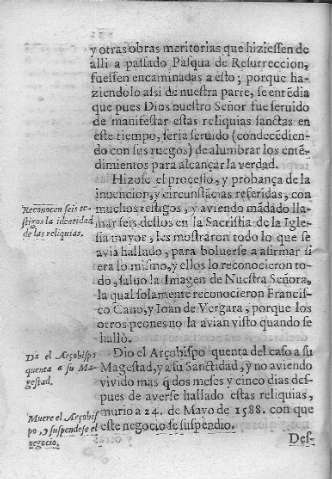 y otras obras meritorias que hiziessen de
alli a passado Pasqua de Resurreccion,
fuessen encaminadas a esto; porque ha-
ziendolo assi de nuestra parte, se entēdia
que pues Dios nuestro Señor fue seruido
de manifestar estas reliquias sanctas en
este tiempo, seria seruido (condecēdien-
do con sus ruegos) de alumbrar los entē-
dimientos para alcançar la verdad.
Hizose el processo, y probança de la
inuencion, y circunstācias referidas, con
muchos testigos, y auiendo mādado lla-
mar seis dellos en la Sacristia de la Igle-
sia mayor, les mostraron todo lo que se
auia hallado, para boluerse a afirmar si
era lo mismo, y ellos lo reconocieron to-
do, saluo la Imagen de Nuestra Señora,
la qual solamente reconocieron Francis-
co Cano, y Ioan de Vergara, porque los
otros peones no la auian visto quando se
hallò.
Dio el Arçobispo quenta del caso a su
Magestad, y a su Sanctidad, y no auiendo
viuido mas q̄ dos meses y cinco dias des-
pues de auerse hallado estas reliquias,
murio a 24. de Mayo de 1588. con que
este negocio se suspendio.
Des-
Reconocen seis te-
stigos la identidad
de las reliquias.
Da el Arçobispo
quenta a su Ma-
gestad.
Muere el Arçobis-
po, y suspendese el
negocio.